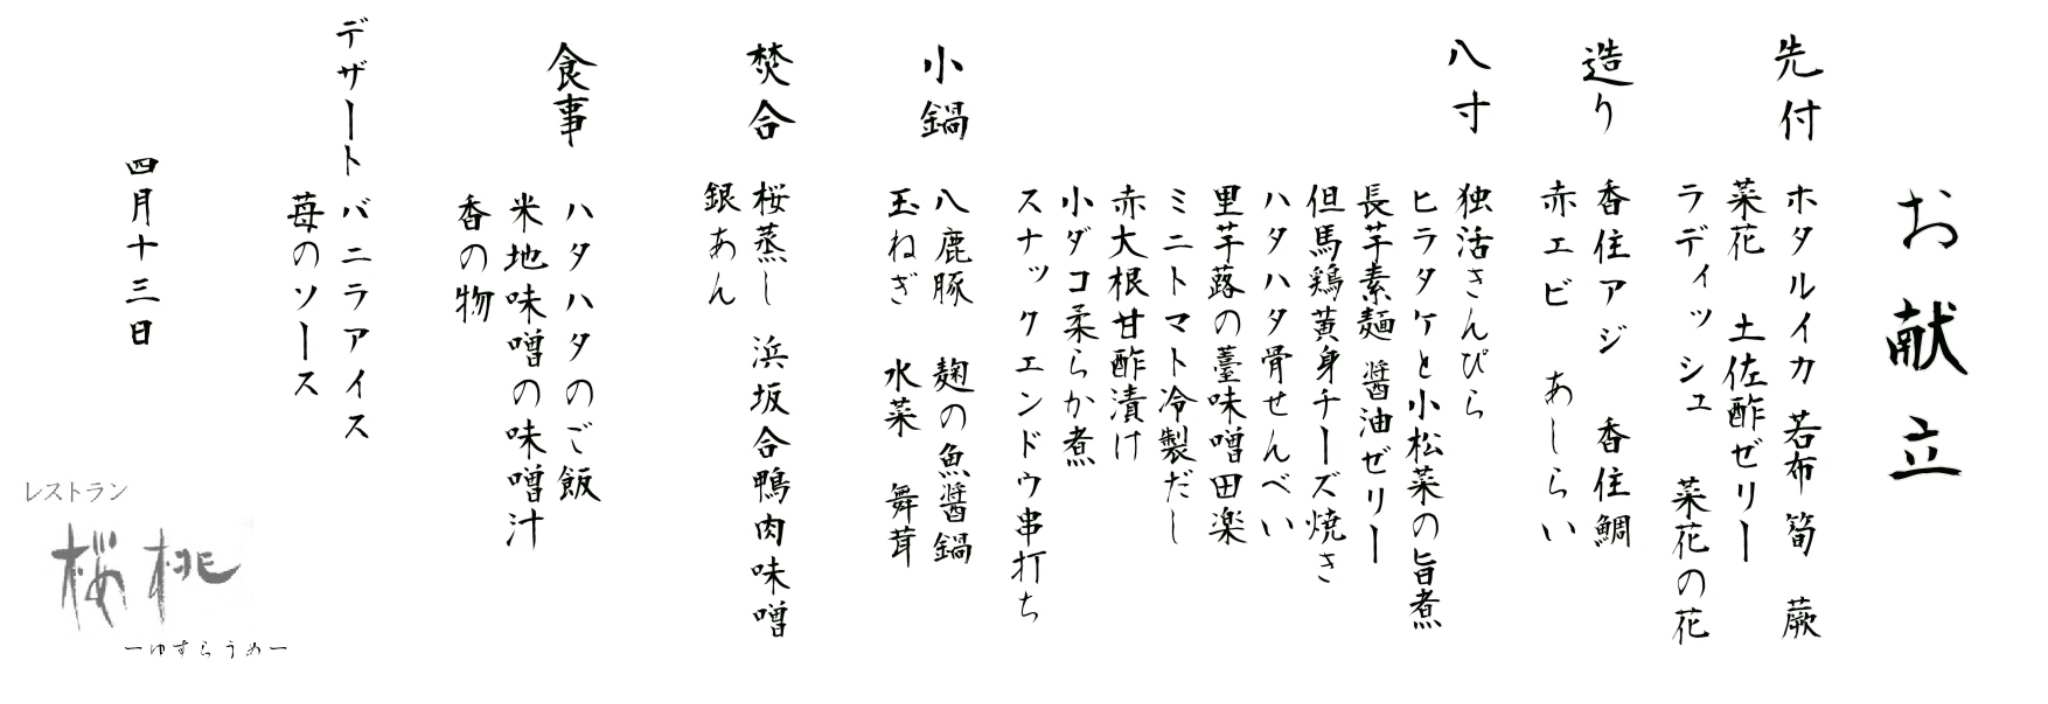 お献立
先付
ホタルイカ 若布 筍 蕨
菜花 土佐酢ゼリー
ラディッシュ 菜花の花
造り
香住アジ 香住鯛
赤エビ あしらい
八寸
独活きんぴら
ヒラタケと小松菜の旨煮
長芋素麺 醤油ゼリー
但馬鶏黄身チーズ焼き
ハタハタ骨せんべい
里芋蕗の薹味噌田楽
ミニトマト冷製だし
赤大根甘酢漬け
小ダコ柔らか煮
スナックエンドウ串打ち
小鍋
八鹿豚 麹の魚醤鍋
玉ねぎ 水菜 舞茸
焚合
桜蒸し 浜坂合鴨肉味噌
銀あん
食事
ハタハタのご飯
米地味噌の味噌汁
香の物
デザート
バニラアイス
苺のソース
四月十三日
レストラン
桜桃
ーゆすらうめー